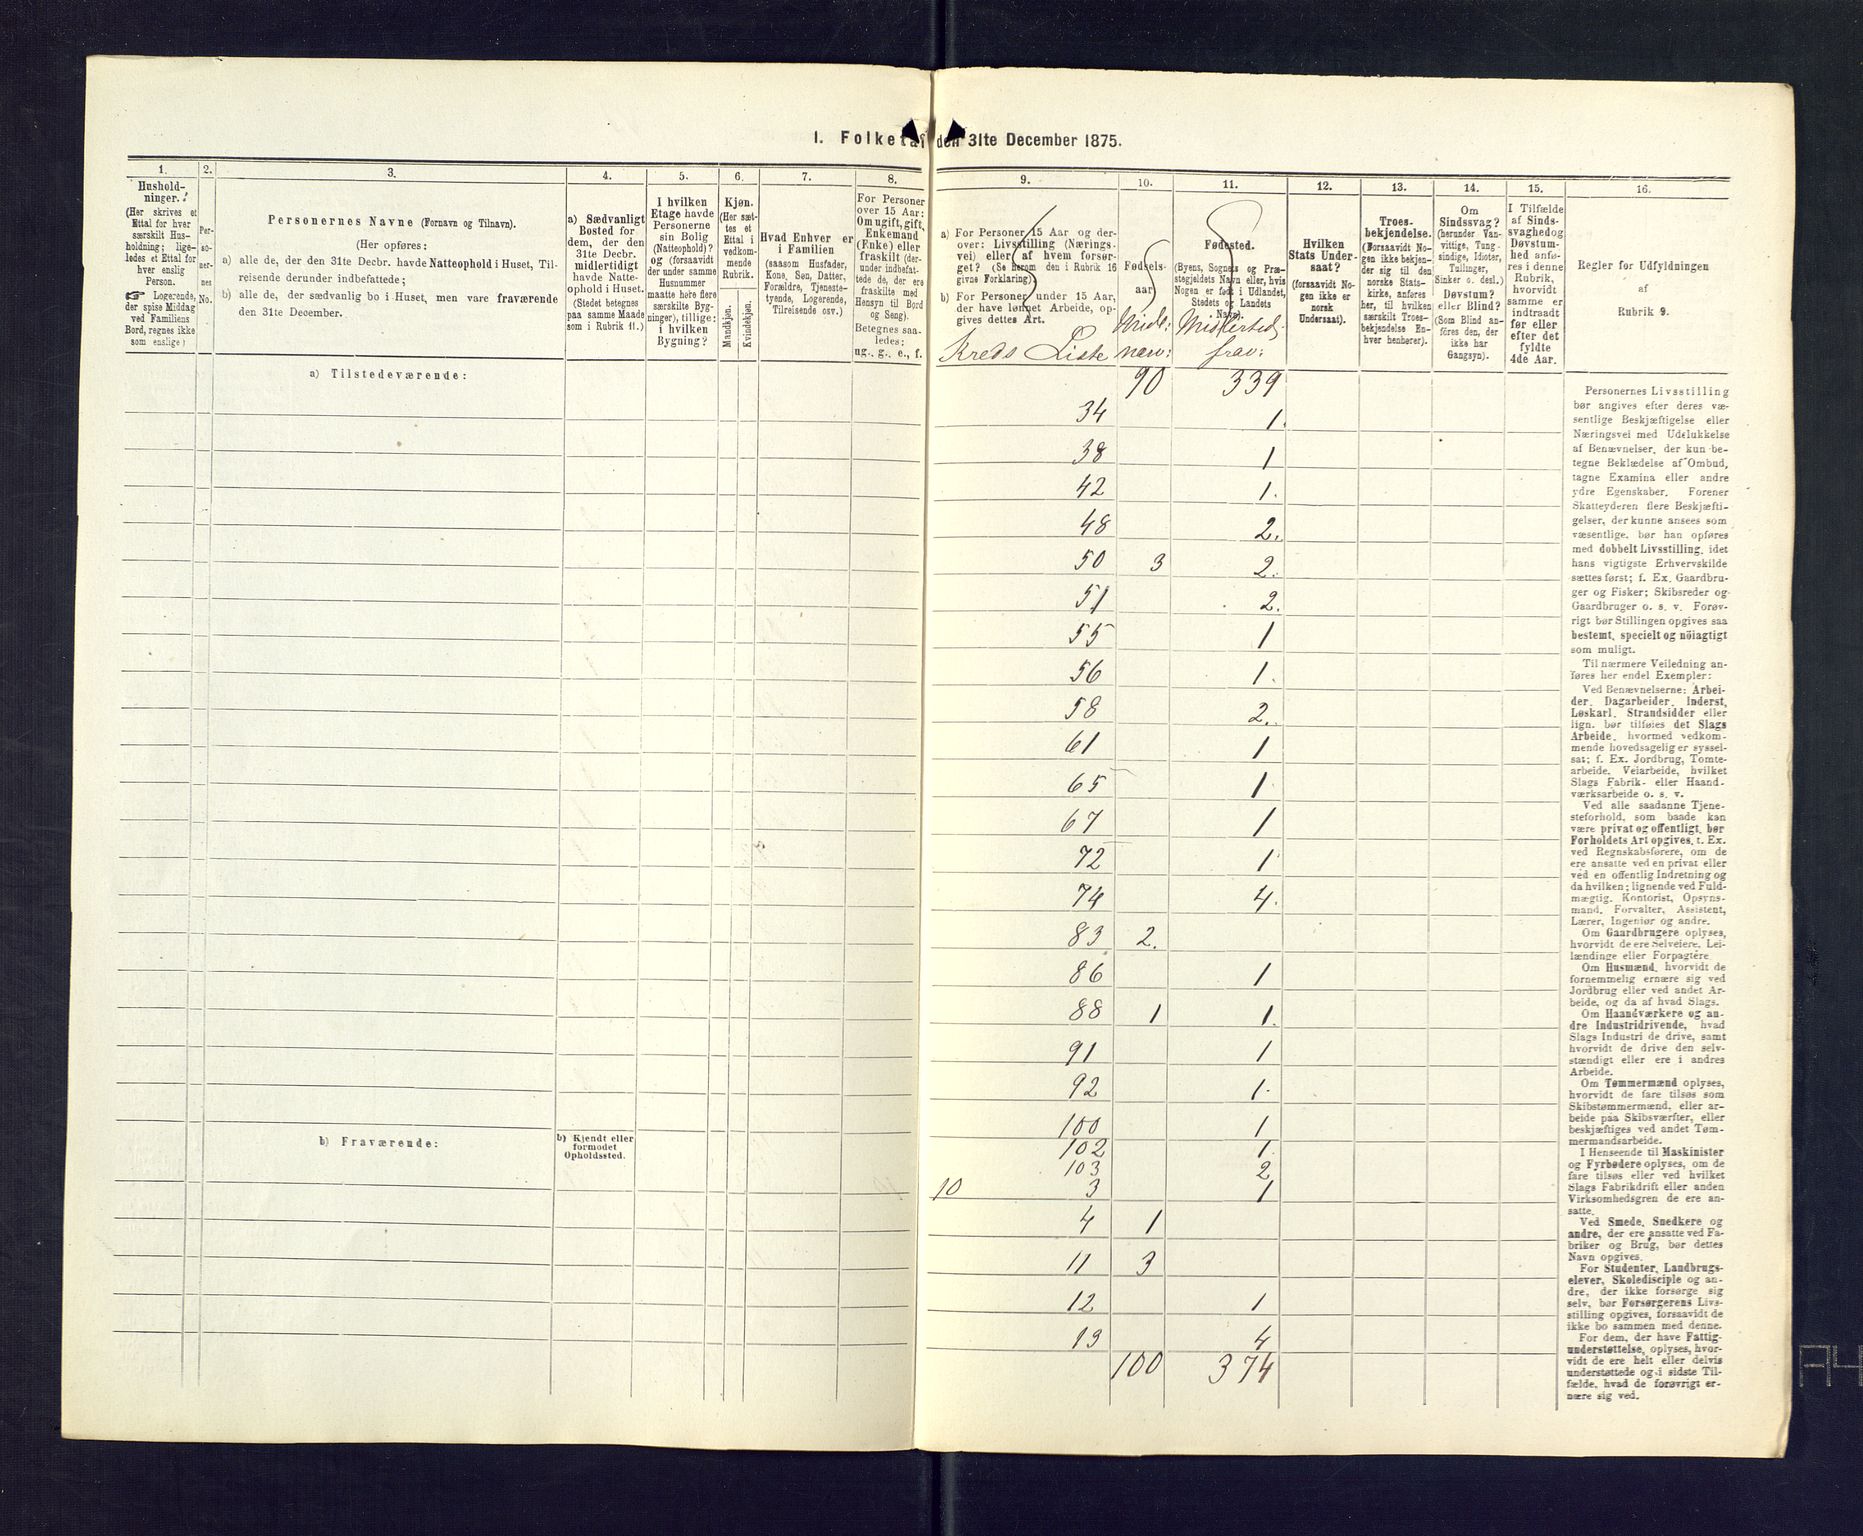 1. Folketal den 31te December 1875.
1.
Hushold-
ninger.
(Her skrives et
Ettal for hver
særskilt Hus-
holdning; lige-
ledes et Ettal for
hver enslig
Person.
☞ Logerende,
der spise Middag
ved Familiens
Bord, regnes ikke
som enslige)
2.
Per-
so-
ner-
nes
No.
3.
Personernes Navne (Fornavn og Tilnavn).
(Her opføres:
a) alle de, der den 31te Decbr. havde Natteophold i Huset, Til-
reisende derunder indbefattede;
b) alle de, der sædvanlig bo i Huset, men vare fraværende
den 31te December.
4.
a) Sædvanligt
Bosted for
dem, der den
31te Decbr.
midlertidigt
havde Natte-
ophold i Huset.
(Stedet betegnes
paa samme Maade
som i Rubrik 11.)
5.
I hvilken
Etage havde
Personerne
sin Bolig
(Natteophold)?
og (forsaavidt
der under samme
Husnummer
maatte høre flere
særskilte Byg-
ninger), tillige:
i hvilken
Bygning?
6.
Kjøn.
(Her sæt-
tes et
Ettal i
vedkom-
mende
Rubrik.
Mandkjøn.
Kvindekjøn.
7.
Hvad Enhver er
i Familien
(saasom Husfader,
Kone, Søn, Datter,
Forældre, Tjeneste-
tyende, Logerende,
Tilreisende osv.)
8.
For Personer
over 15 Aar:
Om ugift, gift,
Enkemand
(Enke) eller
fraskilt (der-
under indbefat-
tede de, der ere
fraskilte med
Hensyn til Bord
og Seng).
Betegnes saa-
ledes:
ug., g., e., f.
9.
a) For Personer 15 Aar og der-
over: Livsstilling (Nærings-
vei) eller af hvem forsør-
get? (Se herom den i Rubrik 16
givne Forklaring).
b) For Personer under 15 Aar,
der have lønnet Arbeide, op-
gives dettes Art.
Kreds Liste
10.
Fødsels-
aar.
Midl:
nærv:
11.
Fødested.
(Byens, Sognets og Præ-
stegjeldets Navn eller, hvis
Nogen er født i Udlandet,
Stedets og Landets
Navn).
Midlertid,
frav:
12.
Hvilken
Stats Under-
saat?
(forsaavidt No-
gen ikke er
norsk
Undersaat).
13.
Troes-
bekjendelse.
(Forsaavidt No-
gen ikke bekjen-
der sig til den
norske Stats-
kirke, anføres
her, til hvilken
særskilt Troes-
bekjendelse En-
hver henhører).
14.
Om
Sindssvag?
(herunder Van-
vittige, Tung-
sindige, Idioter,
Tullinger,
Sinker o. desl.)
Døvstum?
eller Blind?
(Som Blind an-
føres den, der
ikke har
Gangsyn).
15.
I Tilfælde
af Sinds-
svaghed og
Døvstum-
hed anfø-
res i denne
Rubrik,
hvorvidt
samme er
indtraadt
før eller
efter det
fyldte
4de Aar.
16.
Regler for Udfyldningen
af
Rubrik 9.
a) Tilstedeværende:
90 339
34 1.
38 1
42 1.
48 2.
50 3 2.
51 2.
55 1
56 1.
58 2.
61 1
65 1
67 1
72 1
74 4.
83 2.
86 1
88 1 1.
91 1
92 1.
100 1
102 1.
103 2
10 3 1
4 1
11 3
12 1
13 4
100 374
b) Fraværende:
b) Kjendt eller
formodet
Opholdssted.
Personernes Livsstilling
bør angives efter deres væ-
sentlige Beskjæftigelse eller
Næringsvei med Udelukkelse
af Benævnelser, der kun be-
tegne Beklædelse af Ombud,
tagne Examina eller andre
ydre Egenskaber. Forener
Skatteyderen flere Beskjæfti-
gelser, der kunne ansees som
væsentlige, bør han opføres
med dobbelt Livsstilling, idet
hans vigtigste Erhvervskilde
sættes først; f. Ex. Gaardbru-
ger og Fisker; Skibsreder og
Gaardbruger o. s. v. Forøv-
rigt bør Stillingen opgives saa
bestemt, specielt og nöiagtigt
som muligt.
Til nærmere Veiledning an-
føres her endel Exempler:
Ved Benævnelserne: Arbei-
der, Dagarbeider, Inderst,
Løskarl, Strandsidder eller
lign. bør tilføies det Slags
Arbeide, hvormed vedkom-
mende hovedsagelig er syssel-
sat; f. Ex. Jordbrug, Tomte-
arbeide, Veiarbeide, hvilket
Slags Fabrik- eller Haand-
værksarbeide o. s. v.
Ved alle saadanne Tjene-
steforhold, som baade kan
være privat og offentligt, bør
Forholdets Art opgives, t. Ex.
ved Regnskabsførere, om de
ere ansatte ved en privat eller
ved en offentlig Indretning og
da hvilken; lignende ved Fuld-
mægtig, Kontorist, Opsyns-
mand, Forvalter, Assistent,
Lærer, Ingeniør og andre.
Om Gaardbrugere oplyses,
hvorvidt de ere Selveiere, Lei-
lændinge eller Forpagtere.
Om Husmænd, hvorvidt de
fornemmelig ernære sig ved
Jordbrug eller ved andet Ar-
beide, og da af hvad Slags.
Om Haandværkere og an-
dre Industridrivende, hvad
Slags Industri de drive, samt
hvorvidt de drive den selv-
stændigt eller ere i andres
Arbeide.
Om Tømmermænd oplyses,
hvorvidt de fare tilsøs som
Skibstømmermænd, eller ar-
beide paa Skibsværfter, eller
beskjæftiges ved andet Tøm-
mermandsarbeide.
I Henseende til Maskinister
og Fyrbødere oplyses, om de
fare tilsøs eller ved hvilket
Slags Fabrikdrift eller anden
Virksomhedsgren de ere an-
satte.
Ved Smede, Snedkere og
andre, der ere ansatte ved Fa-
briker og Brug, bør dettes
Navn opgives.
For Studenter, Landbrugs-
elever, Skoledisciple og an-
dre, der ikke forsørge sig
selv, bør Forsørgerens Livs-
stilling opgives, forsaavidt de
ikke bo sammen med denne.
For dem, der have Fattig-
understøttelse, oplyses, hvor-
vidt de ere helt eller delvis
understøttede og i sidste Til-
fælde, hvad de forøvrigt er-
nære sig ved.